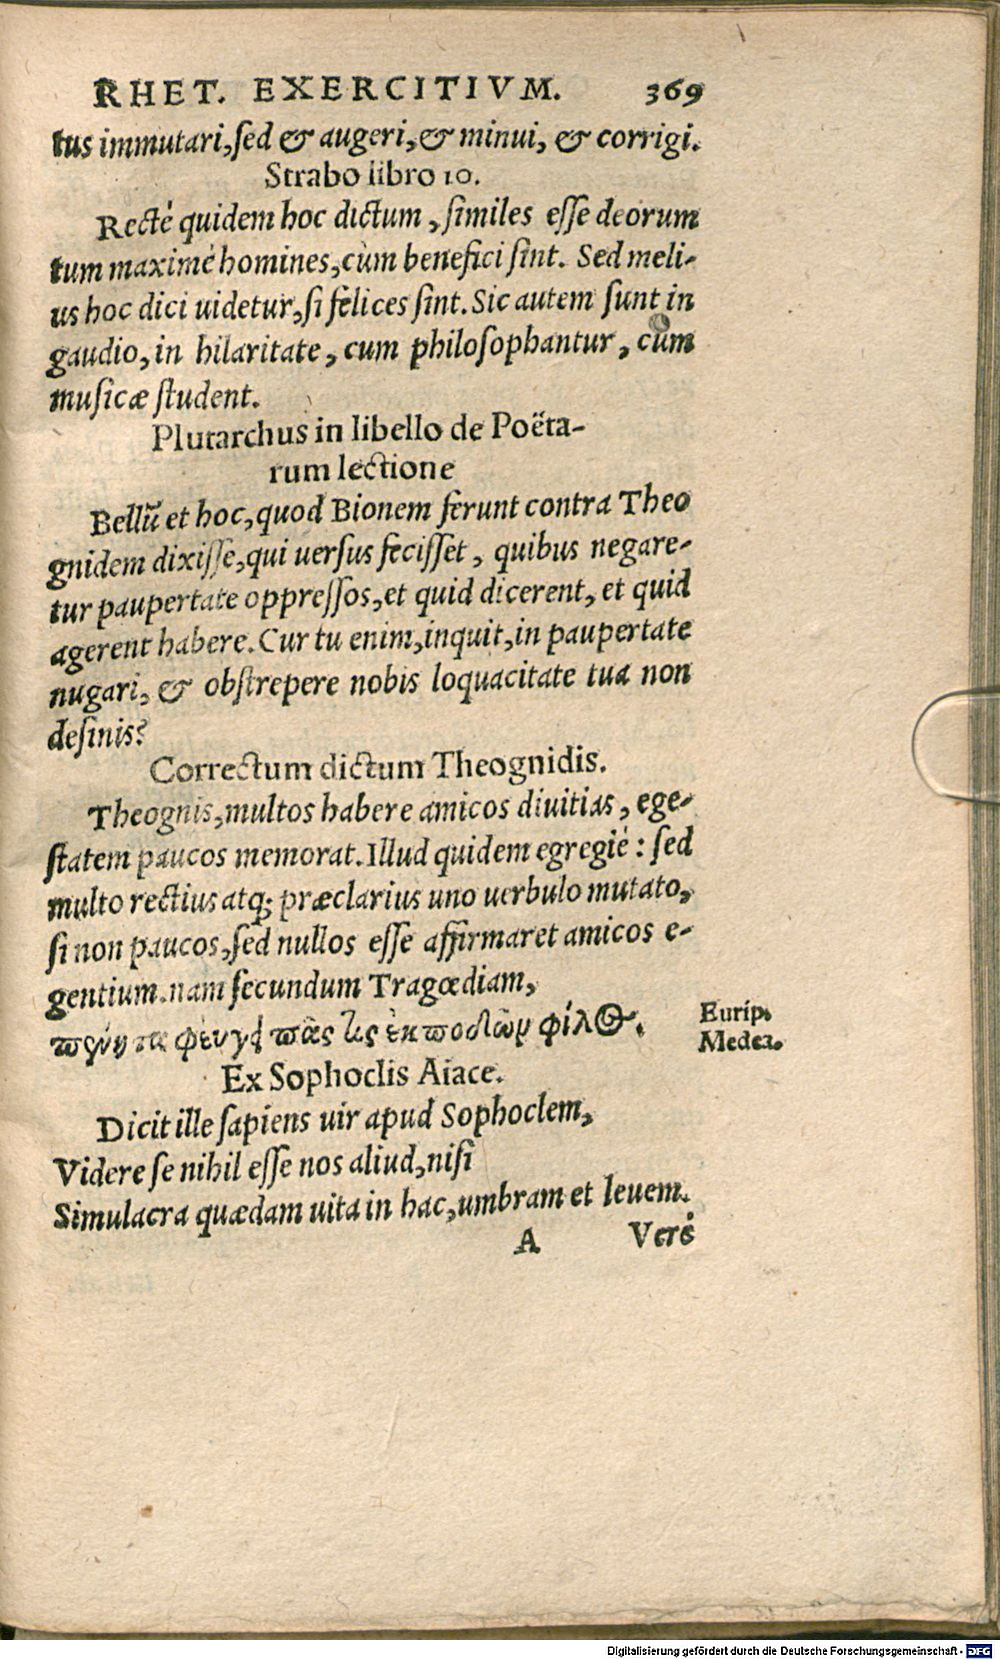 RHET. EXERCITIVM. 369
tus immutari, sed & augeri, & minui, & corrigi.
Strabo libro 10.
Recté quidem hoc dictum, similes esse deorum
tum maximé homines, cùm benefici sint. Sed meli-
us hoc dici uidetur, si felices sint. Sic autem sunt in
gaudio, in hilaritate, cum philosophantur, cùm
musicæ student.
Plutarchus in libello de Poëta-
rum lectione
Bellũ et hoc, quod Bionem ferunt contra Theo
gnidem dixisse, qui uersus fecisset, quibus negare-
tur paupertate oppressos, et quid dicerent, et quid
agerent habere. Cur tu enim, inquit, in paupertate
nugari, & obstrepere nobis loquacitate tua non
desinis?
Correctum dictum Theognidis.
Theognis, multos habere amicos diuitias, ege-
statem paucos memorat. Illud quidem egregié: sed
multo rectius atq; præclarius uno uerbulo mutato,
si non paucos, sed nullos esse affirmaret amicos e-
gentium. nam secundum Tragœdiam,
πένητα φεύγει πᾶς τις ἐκποδὼν φίλος.
Eurip.
Medea.
Ex Sophoclis Aiace.
Dicit ille sapiens uir apud Sophoclem,
Videre se nihil esse nos aliud, nisi
Simulacra quædam uita in hac, umbram et leuem.
A Veré
Digitalisierung gefördert durch die Deutsche Forschungsgemeinschaft - DFG